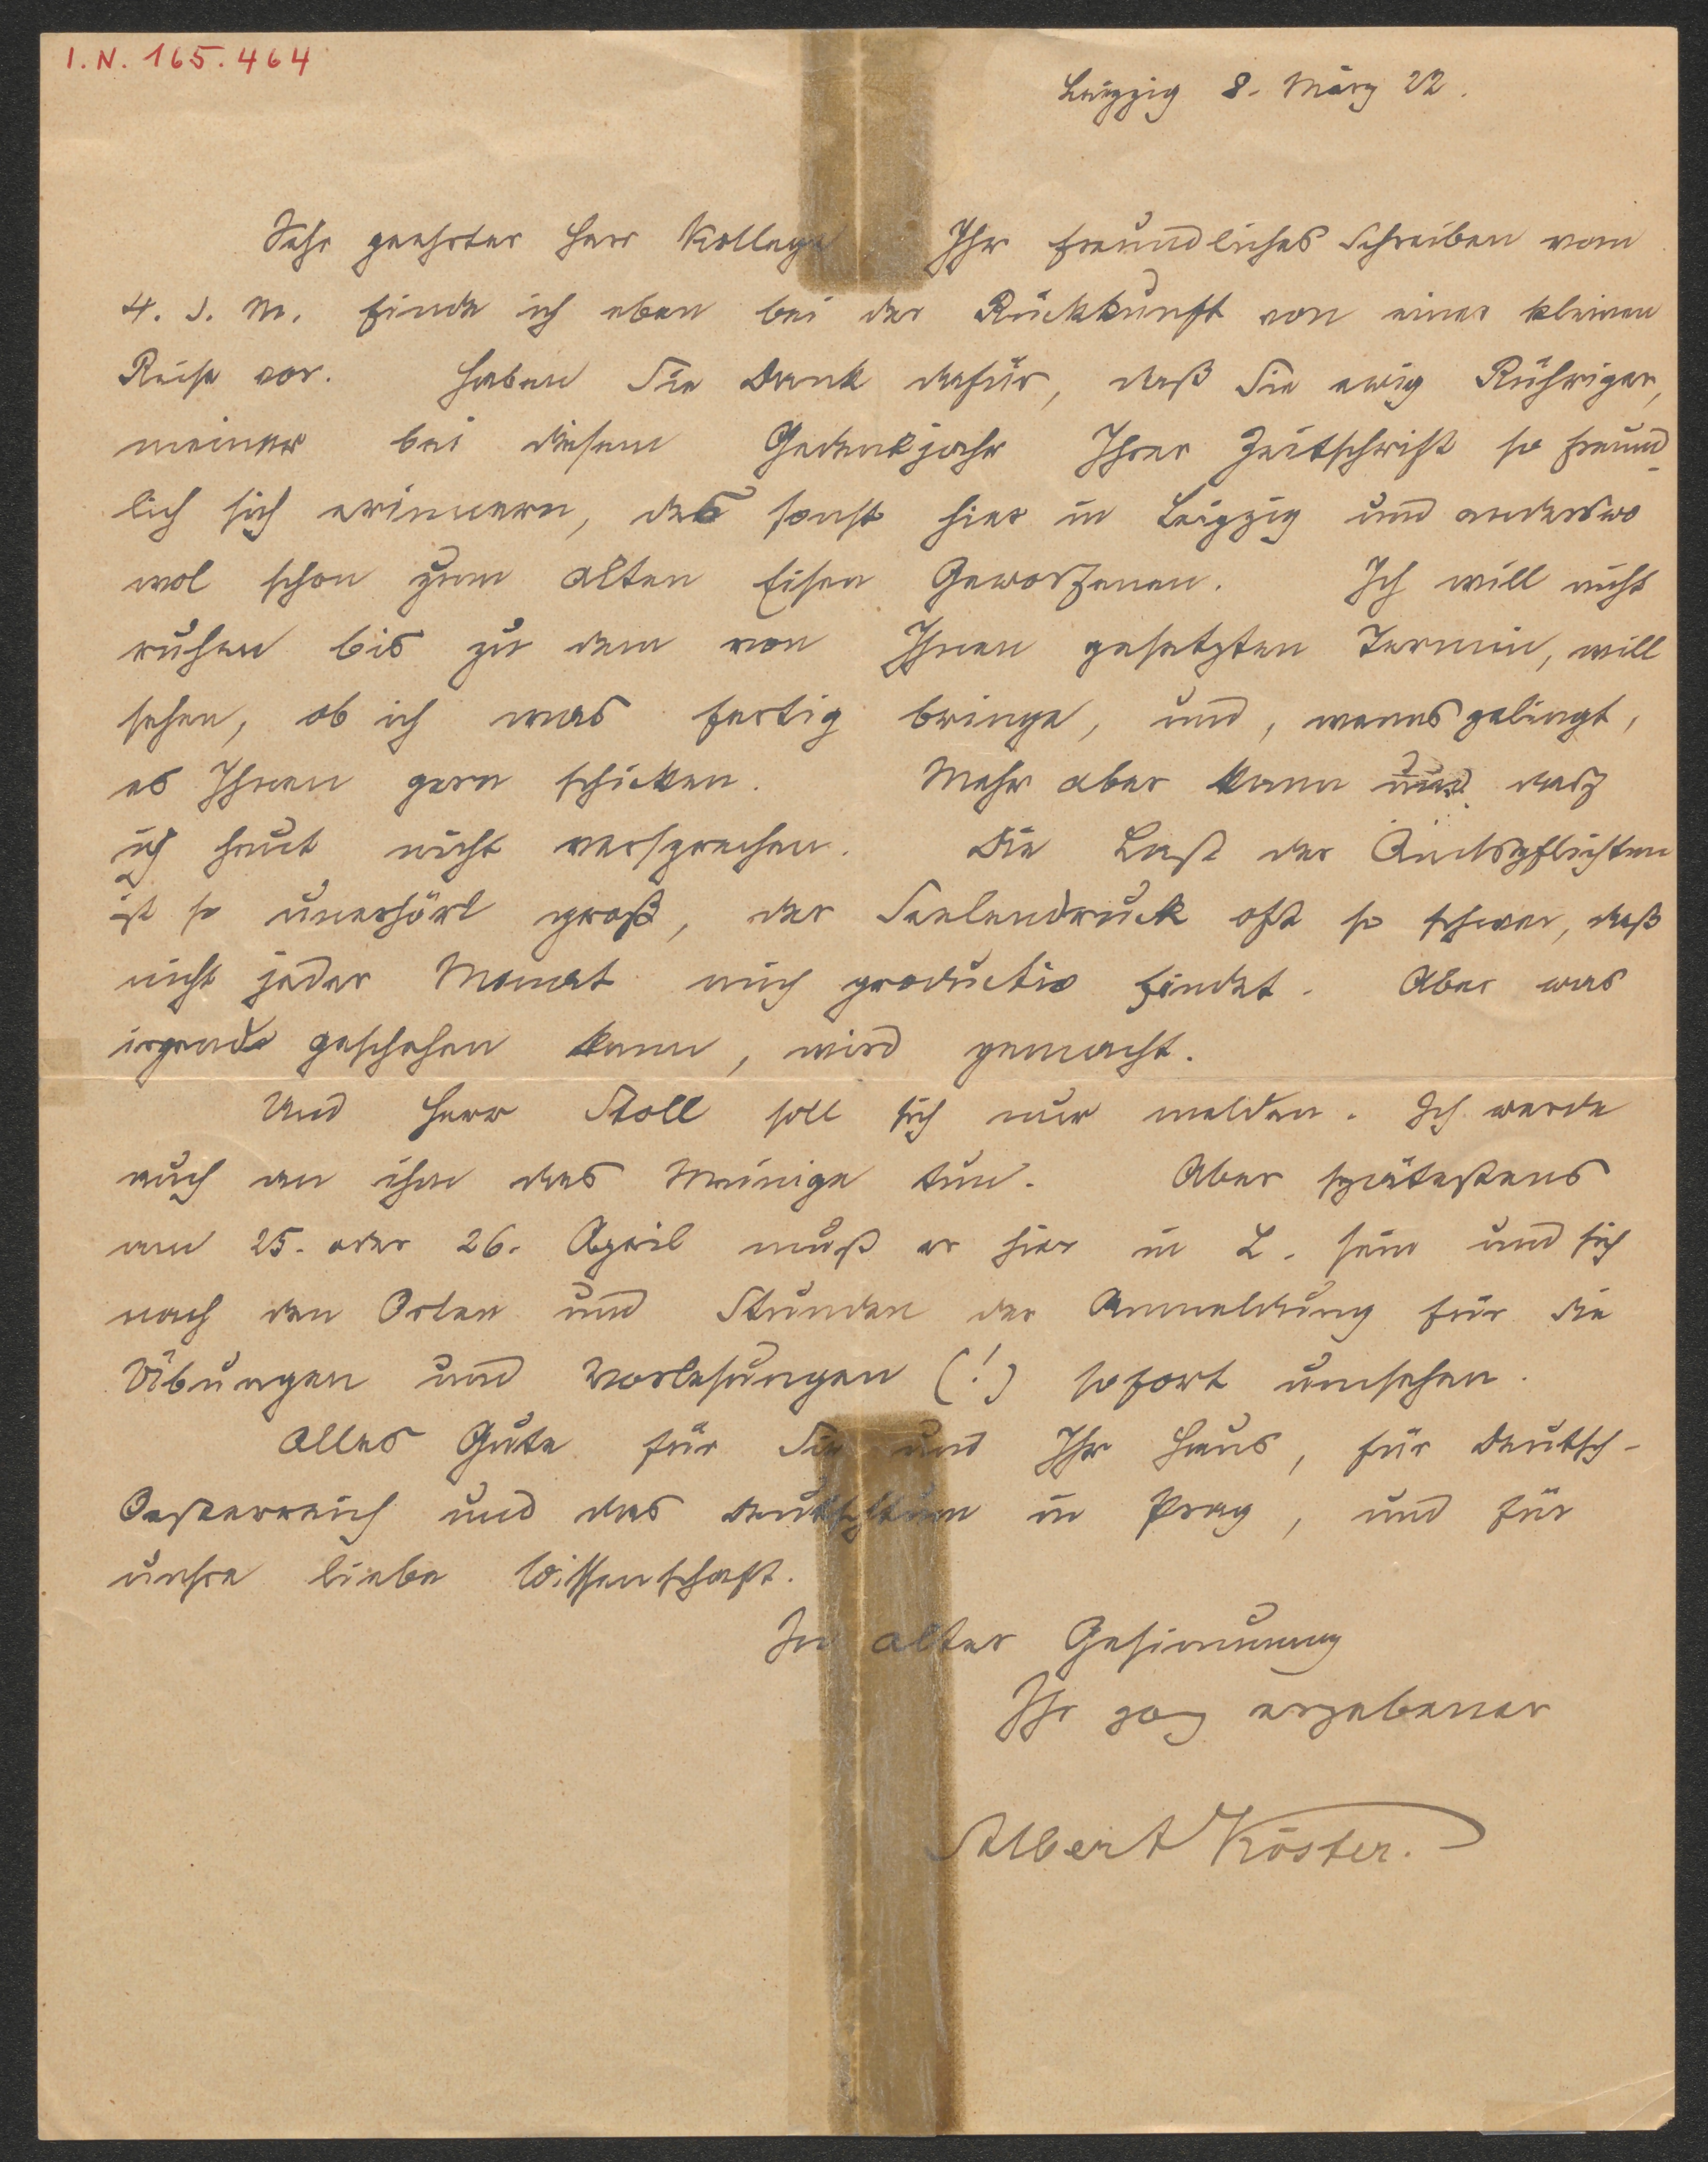 I.N. 165.464
Leipzig 8. März 22.
Sehr geehrter Herr Kollege Ihr freundliches Schreiben vom
4. d. M. finde ich eben bei der Rückkunft von einer kleinen
Reise vor. Haben Sie Dank dafür, daß Sie ewig Rühriger,
meiner bei diesem Gedenkjahr Ihrer Zeitschrift so freund-
lich sich erinnern, des sonst hier in Leipzig und anderswo
wol schon zum alten Eisen Geworfenen. Ich will nicht
ruhen bis zu dem von Ihnen gesetzten Termin, will
sehen, ob ich was fertig bringe, und, wenns gelingt,
es Ihnen gern schicken. Mehr aber kann und darf
ich heut nicht versprechen. Die Last der Amtspflichten
ist so unerhört groß, der Seelendruck oft so schwer, daß
nicht jeder Monat mich productiv findet. Aber was
irgend geschehen kann, wird gemacht.
Und Herr Stoll soll sich nur melden. Ich werde
auch an ihm das Meinige tun. Aber spätestens
am 25. oder 26. April muß er hier in L. sein und sich
nach den Orten und Stunden der Anmeldung für die
Übungen und Vorlesungen (!) sofort umsehen.
Alles Gute für Sie und Ihr Haus, für Deutsch-
Oesterreich und das Deutschtum in Prag, und für
unsre liebe Wissenschaft.
In alter Gesinnung
Ihr ganz ergebener
Albert Köster.